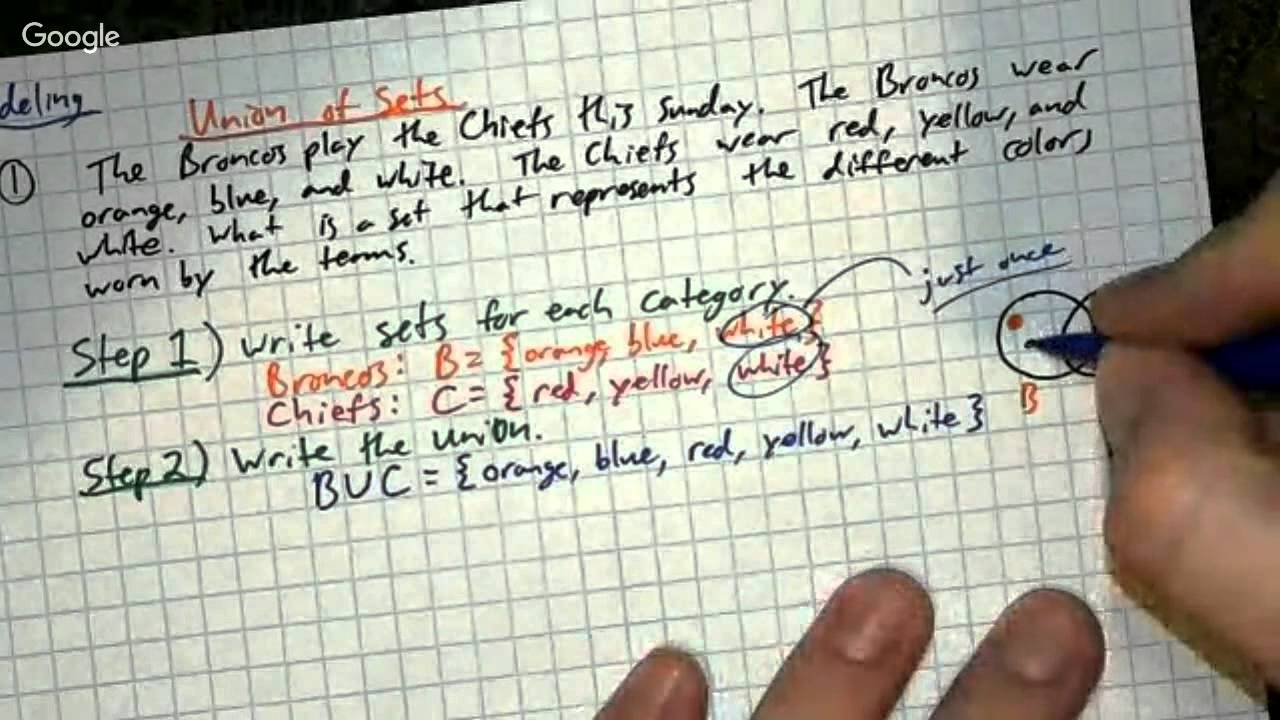 Google
deling
Union of Sets
① The Broncos play the Chiefs this Sunday. The Broncos wear
orange, blue, and white. The Chiefs wear red, yellow, and
white. What is a set that represents the different colors
worn by the teams.
Step 1) Write sets for each category.
just once
Broncos: B= {orange, blue, white}
Chiefs: C= { red, yellow, white}
B
Step 2) Write the union.
B∪C = {orange, blue, red, yellow, white}